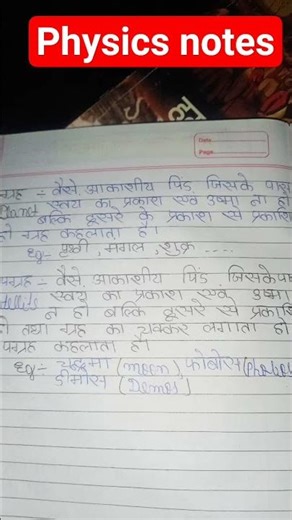 Physics notes
Date
Page
ग्रह :- वैसे आकाशीय पिंड जिसके पास
Planet स्वयं का प्रकाश एवं उष्मा ना हो
बल्कि दूसरे के प्रकाश से प्रकाशि
हो ग्रह कहलाता है।
Eg:- पृथ्वी, मंगल, शुक्र ....
पग्रह :- वैसे आकाशीय पिंड जिसके पा
tellite स्वयं का प्रकाश एवं उष्मा
न हो बल्कि दूसरे से प्रकाशि
हो तथा ग्रह का चक्कर लगाता हो
पग्रह कहलाता है।
Eg:- चन्द्रमा (moon), फोबोस (Phobos
डीमोस (Demos)